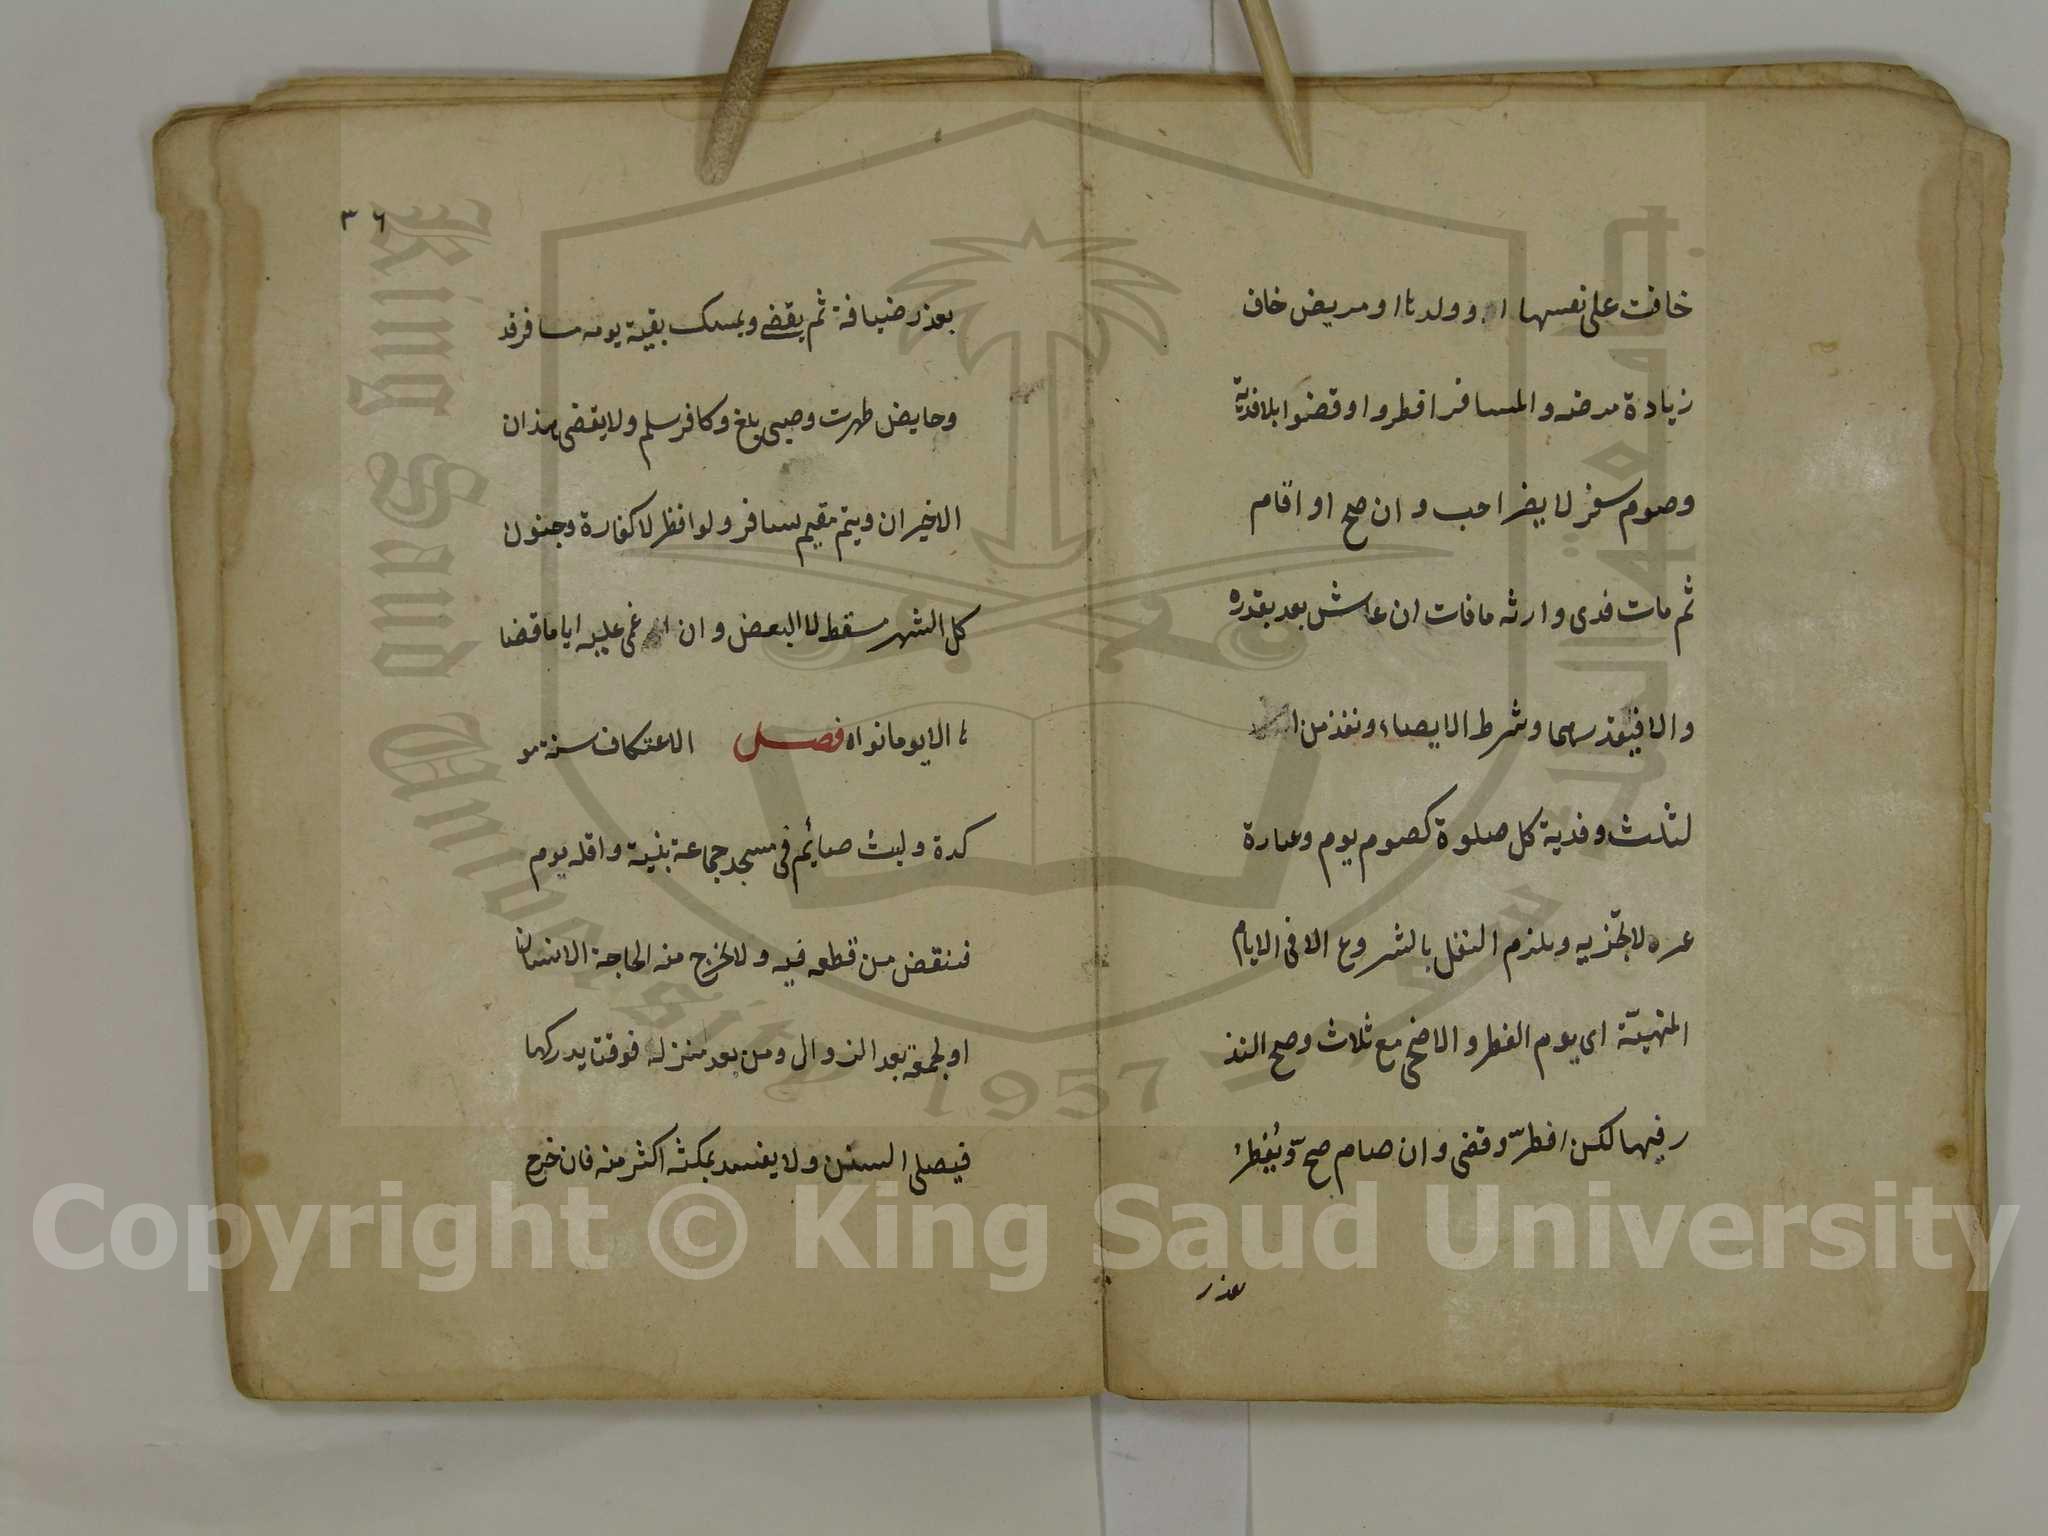 خافت على نفسها او ولدها او مريض خاف
زيادة مرضه والمسافر افطروا وقضوا بلا فدية
وصوم سفر لا يضر احب وان صح او اقام
ثم مات فدى وارثه ما فات ان عاش بعد بقدره
والا فبقدرهما وشرط الايصاء ونفذ من
لثلث وفدية كل صلوة كصوم يوم وعبادة
غيره لا تجزيه ويلزم النفل بالشروع الا فى الايام
المنهية اى يوم الفطر والاضحى مع ثلاث وصح النذ
ر فيها لكن افطر وقضى وان صام صح ويفطر
بعذر
٣٦
بعذر ضيافة ثم يقضى ويمسك بقية يومه مسافر قد
وحايض طهرت وصبى بلغ وكافر سلم ولا يقضى هذان
الاخيران ويتم مقيم سافر ولو افطر لا كفارة وجنون
كل الشهر مسقط لا البعض وان اغمى عليه اياما قضا
ها الا يوما نواه فصل الاعتكاف سنة مو
كدة ولبث صايم فى مسجد جماعة بنية واقله يوم
فنقض من قطعه فيه ولا يخرج منه الحاجة الانسان
او لجمعة بعد الزوال ومن بعد منزله فوقتا يدركها
فيصلى السنن ولا يفسد بمكثه اكثر منه فان خرج
Copyright © King Saud University
King Saud University
جامعة الملك سعود
1957